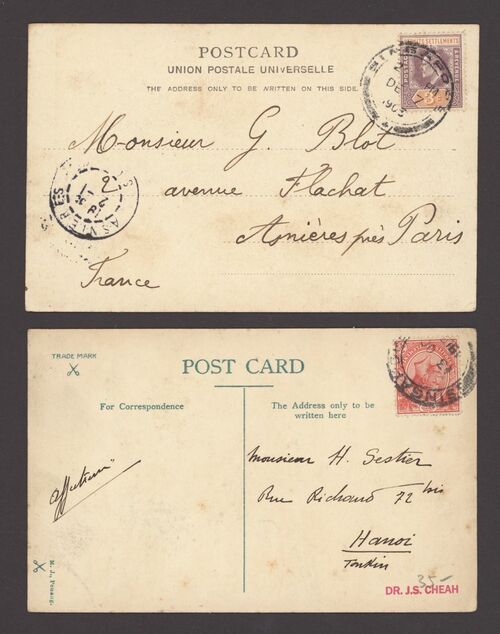 POSTCARD
UNION POSTALE UNIVERSELLE
THE ADDRESS ONLY TO BE WRITTEN ON THIS SIDE.
STRAITS SETTLEMENTS
SINGAPORE
DE
1903
Monsieur G. Blot
avenue Flachat
Asnières près Paris
France
ASNIERES
TRADE MARK
POST CARD
For Correspondence
The Address only to be
written here
Monsieur H. Sestier
Rue Richaud 72 bis
Hanoi
Tonkin
M. J., Penang.
35-
DR. J.S. CHEAH